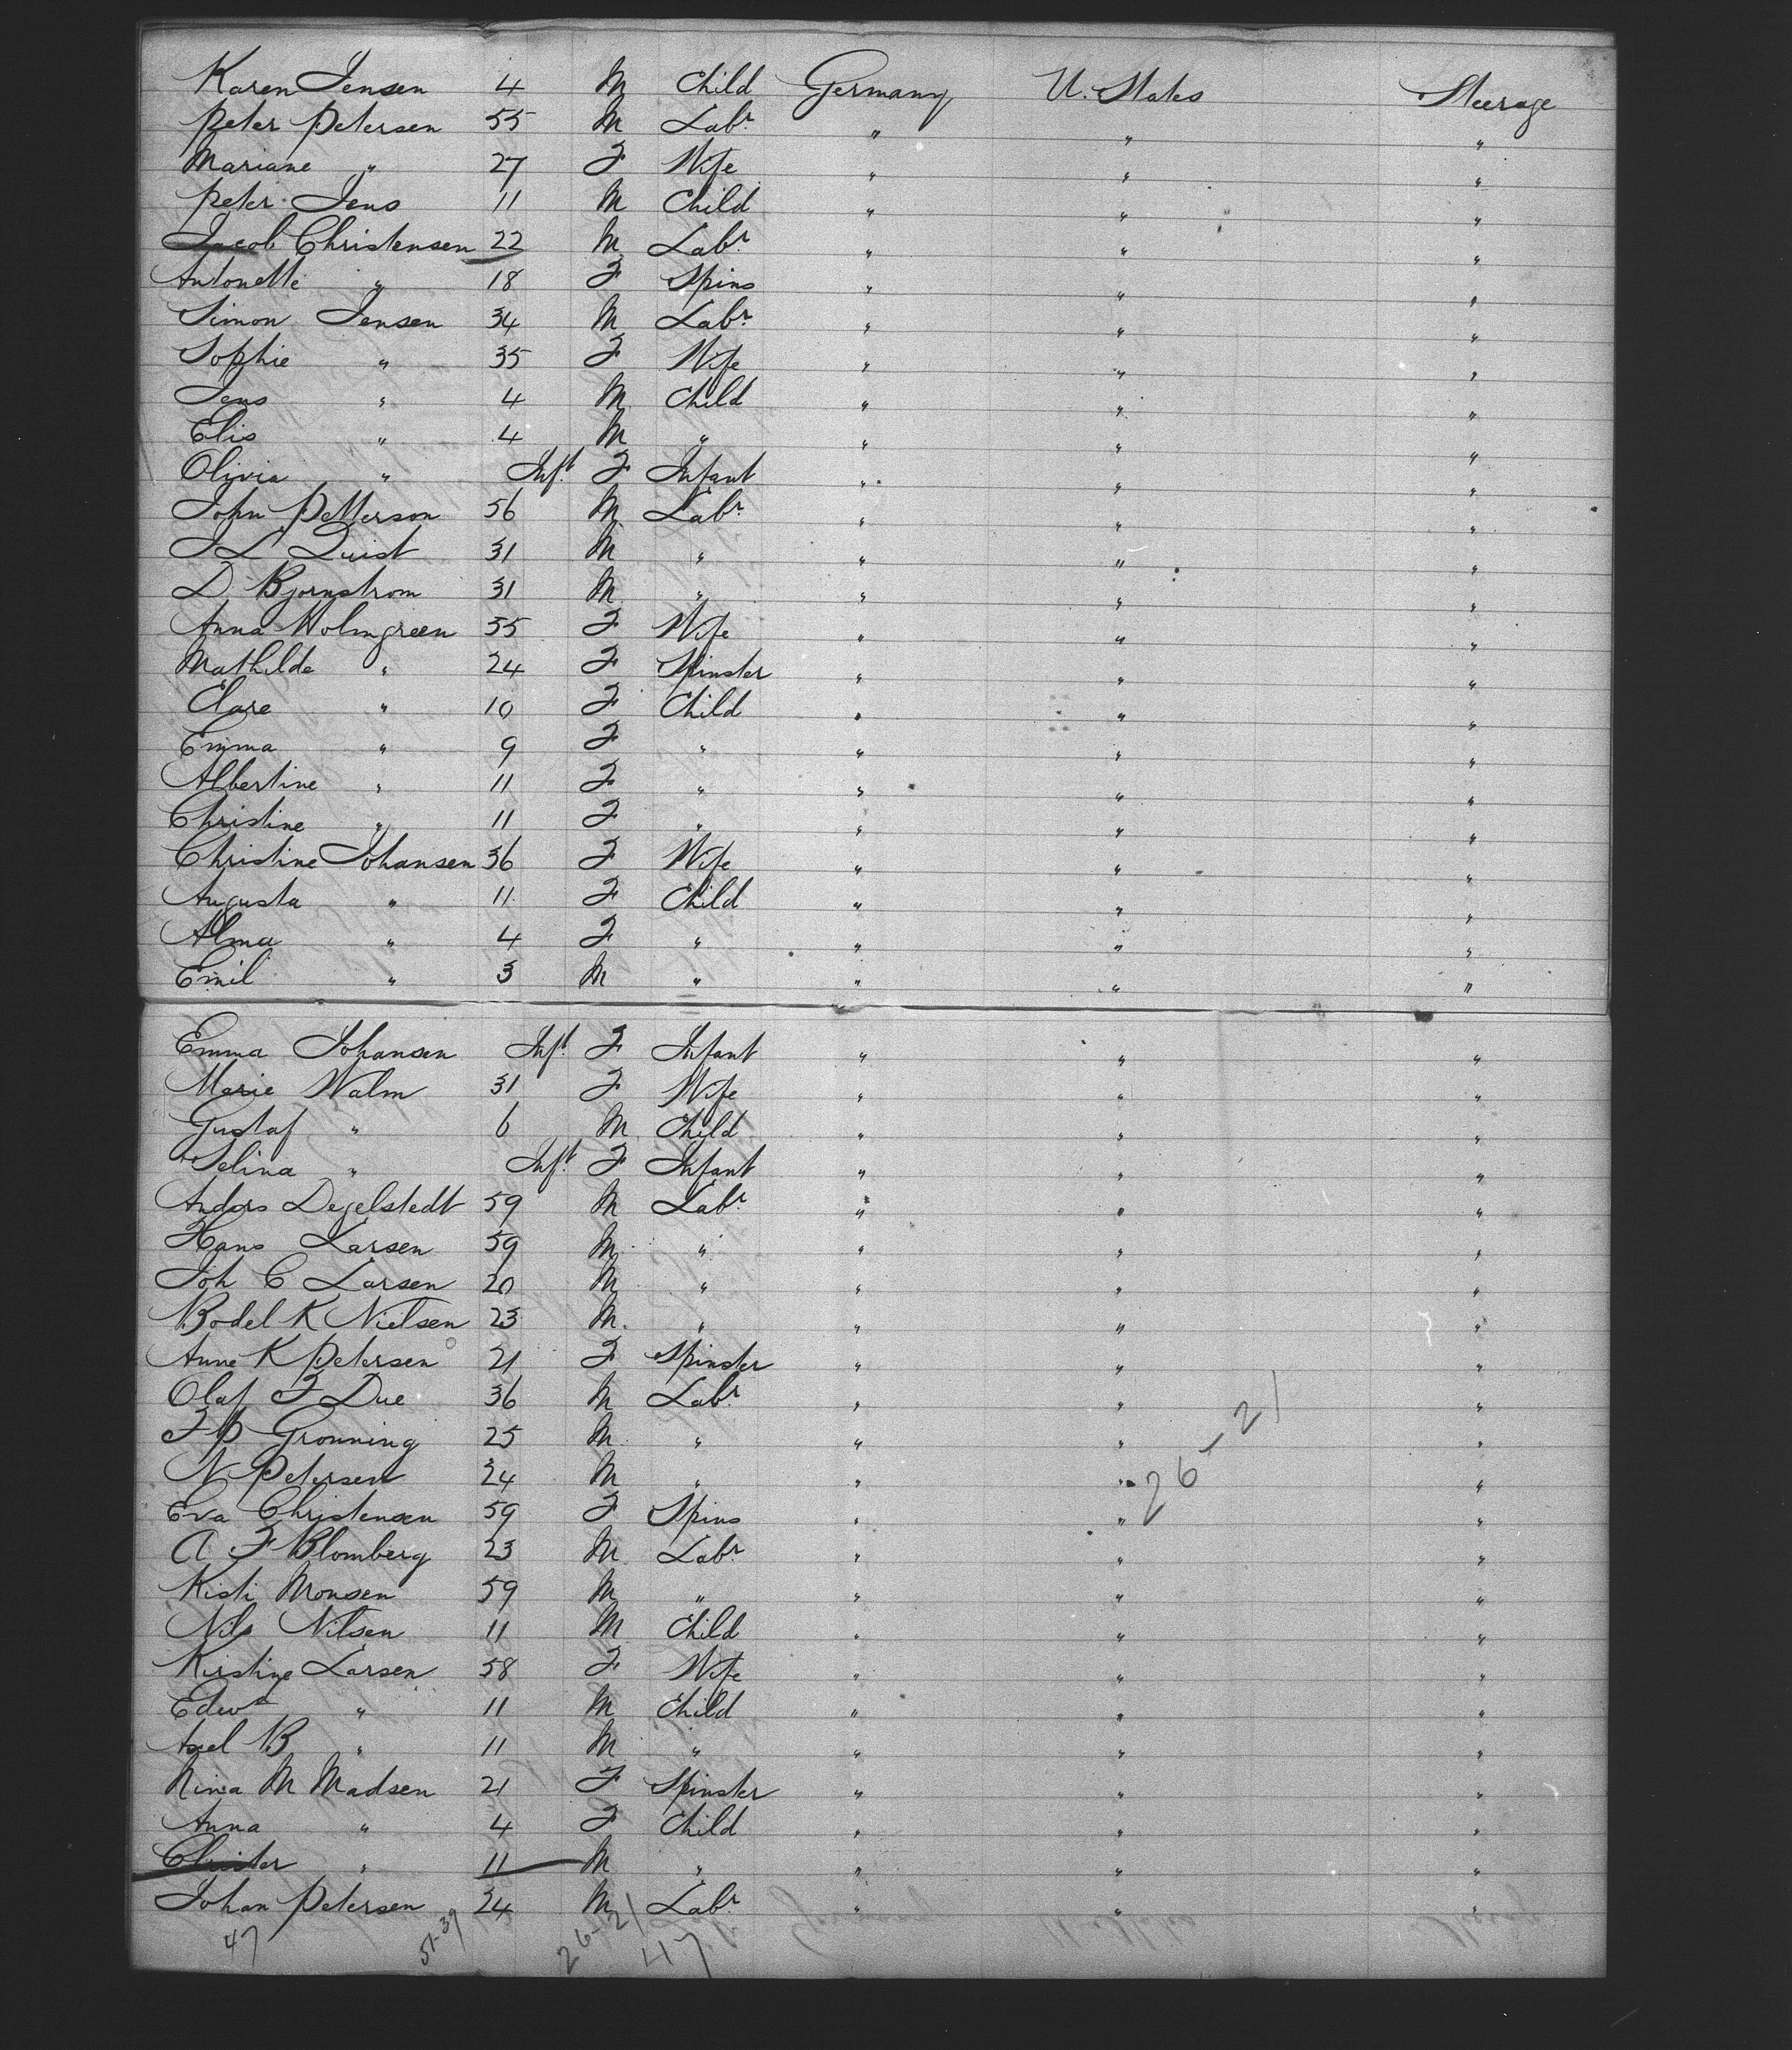 Karen Jensen 4 M Child Germany U. States Steerage
Peter Petersen 55 M Labr. " " "
Mariane " 27 F Wife " " "
Peter Jens 11 M Child " " "
Jacob Christensen 22 M Labr. " " "
Antonette " 18 F Spins " " "
Simon Jensen 34 M Labr. " " "
Sophie " 35 F Wife " " "
Jens " 4 M Child " " "
Elis " 4 M " " " "
Olivia " Inft. F Infant " " "
John Petterson 56 M Labr. " " "
J L Quist 31 M " " " "
D. Bjornstrom 31 M " " " "
Anna Holmgreen 55 F Wife " " "
Mathilde " 24 F Spinster " " "
Clare " 10 F Child " " "
Emma " 9 F " " " "
Albertine " 11 F " " " "
Christine " 11 F " " " "
Christine Johansen 36 F Wife " " "
Augusta " 11 F Child " " "
Alma " 4 F " " " "
Emil " 3 M " " " "
Emma Johansen Inft. F Infant " " "
Marie Walm 31 F Wife " " "
Gustaf " 6 M Child " " "
Selina " Inft. F Infant " " "
Anders Degelstedt 59 M Labr. " " "
Hans Larsen 59 M " " " "
Joh C Larsen 20 M " " " "
Bodel K Nielsen 23 M. " " " "
Anne K Petersen 21 F Spinster " " "
Olaf F Due 36 M Labr. " " "
F P Gronning 25 M " " " "
N Petersen 24 M " " " "
26-21
Eva Christensen 59 F Spins " " "
A F Blomberg 23 M Labr. " " "
Kisti Monsen 59 M " " " "
Nils Nilsen 11 M Child " " "
Kirstine Larsen 58 F Wife " " "
Edw " 11 M Child " " "
Axel B " 11 M " " " "
Nina M Madsen 21 F Spinster " " "
Anna " 4 F Child " " "
Christer " 11 M " " " "
Johan Petersen 24 M Labr. " " "
47 51-39 26-21 47